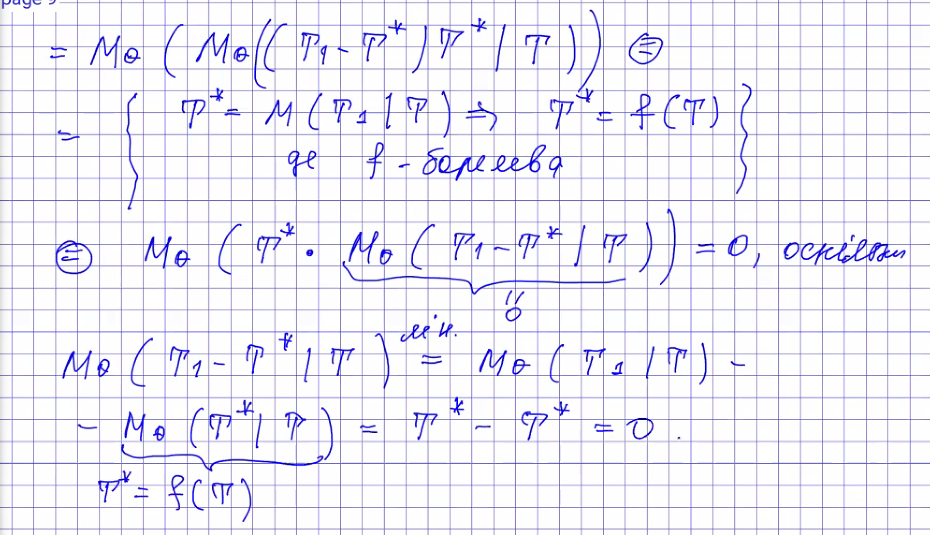 page 9
= Mθ ( Mθ((T₁ - T*) T* | T)) ⊜
= { T* = M(T₁ | T) ⇒ T* = f(T)
де f - борелева }
⊜ Mθ ( T* · Mθ ( T₁ - T* | T )) = 0, оскільки
0
Mθ ( T₁ - T* | T ) лін. = Mθ ( T₁ | T ) -
- Mθ ( T* | T ) = T* - T* = 0.
T* = f(T)